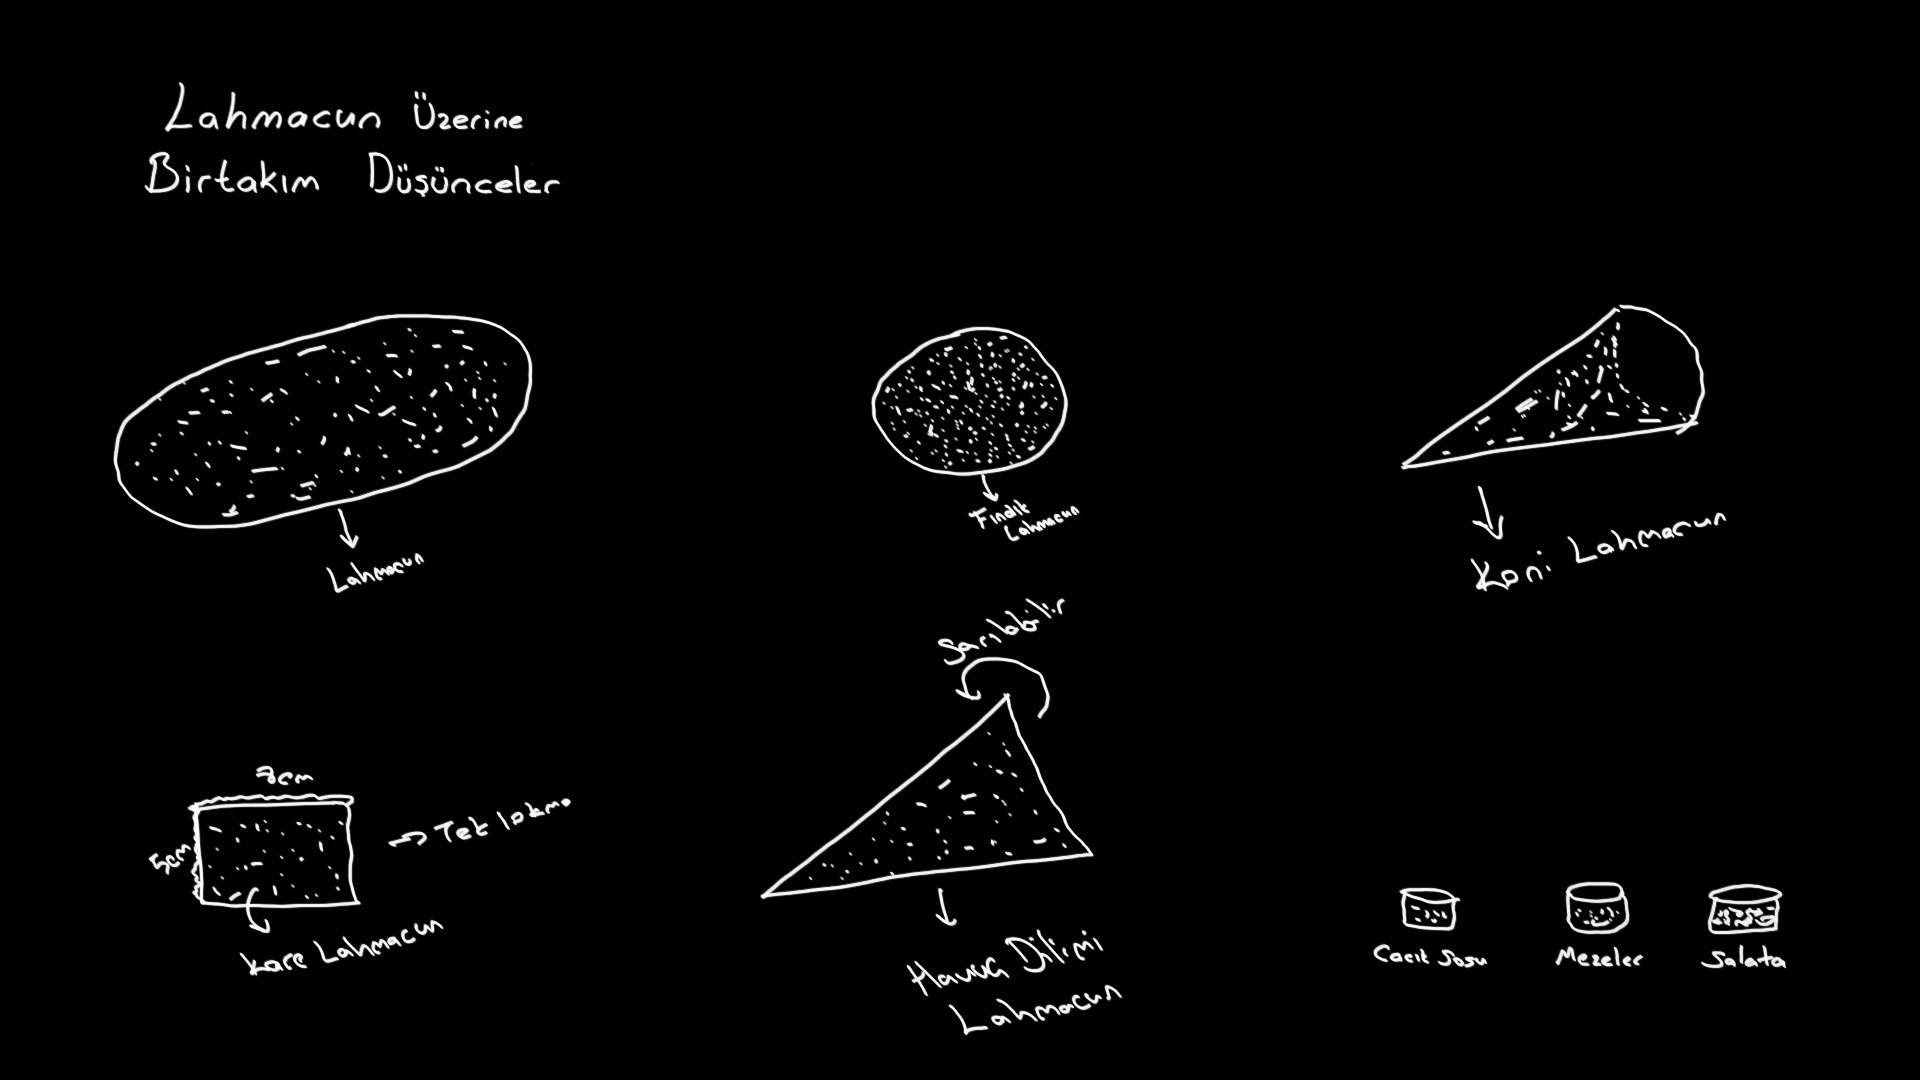 Lahmacun Üzerine
Birtakım Düşünceler
Lahmacun
Fındık
Lahmacun
Koni Lahmacun
Sarılabilir
5cm
Tek lokma
Kare Lahmacun
Havuç Dilimi
Lahmacun
Cacık Sosu
Mezeler
Salata